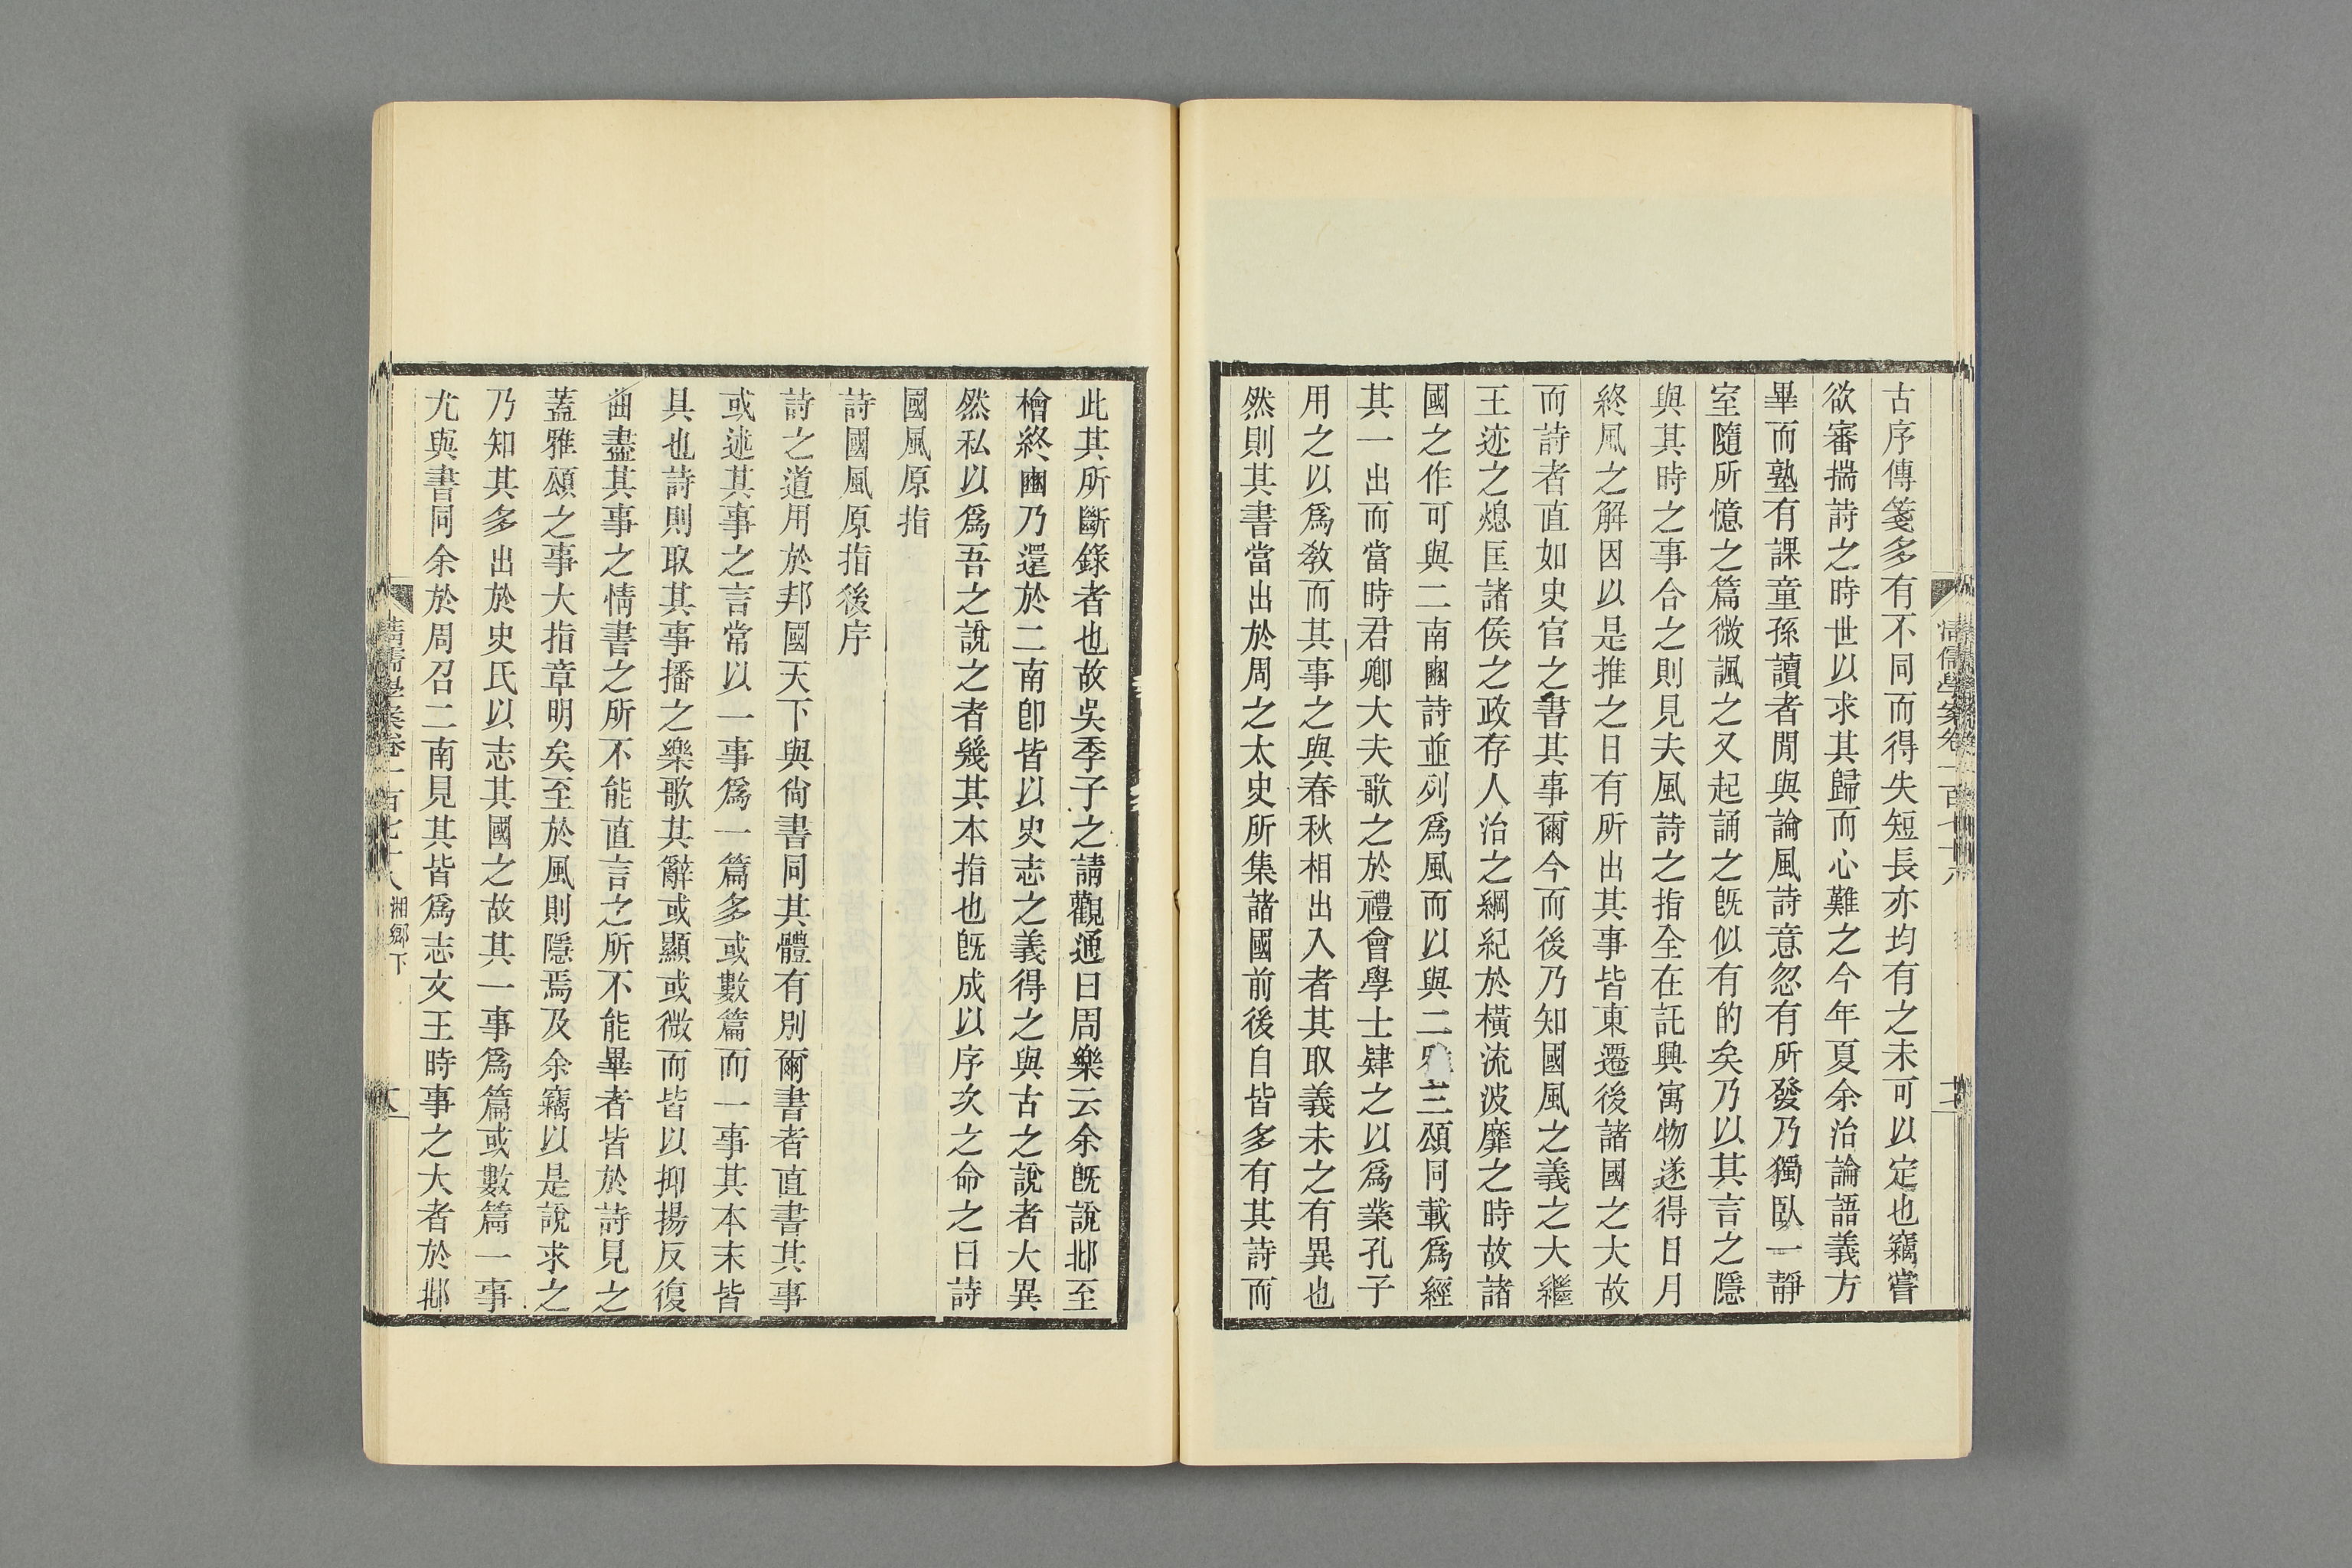 古序傳箋多有不同而得失短長亦均有之未可以定也竊嘗
欲審揣詩之時世以求其歸而心難之今年夏余治論語義方
畢而塾有課童孫讀者閒與論風詩意忽有所發乃獨臥一靜
室隨所憶之篇微諷之又起誦之旣似有的矣乃以其言之隱
與其時之事合之則見夫風詩之指全在託興寓物遂得日月
終風之解因以是推之日有所出其事皆東遷後諸國之大故
而詩者直如史官之書其事爾今而後乃知國風之義之大繼
王迹之熄匡諸侯之政存人治之綱紀於橫流波靡之時故諸
國之作可與二南豳詩並列爲風而以與二雅三頌同載爲經
其一出而當時君卿大夫歌之於禮會學士肄之以爲業孔子
用之以爲教而其事之與春秋相出入者其取義未之有異也
然則其書當出於周之太史所集諸國前後自皆多有其詩而
此其所斷錄者也故吳季子之請觀通曰周樂云余旣說邶至
檜終豳乃還於二南卽皆以史志之義得之與古之說者大異
然私以爲吾之說之者幾其本指也旣成以序次之命之曰詩
國風原指
詩國風原指後序
詩之道用於邦國天下與尙書同其體有別爾書者直書其事
或述其事之言常以一事爲一篇多或數篇而一事其本末皆
具也詩則取其事播之樂歌其辭或顯或微而皆以抑揚反復
曲盡其事之情書之所不能直言之所不能畢者皆於詩見之
蓋雅頌之事大指章明矣至於風則隱焉及余竊以是說求之
乃知其多出於史氏以志其國之故其一事爲篇或數篇一事
尤與書同余於周召二南見其皆爲志文王時事之大者於邶
清儒學案卷一百七十八 湘鄉下